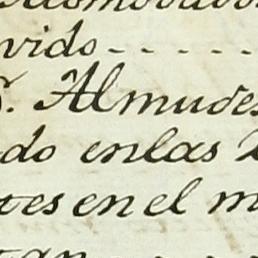 vido - - - - -
Almudes
do enlas
tes en el m